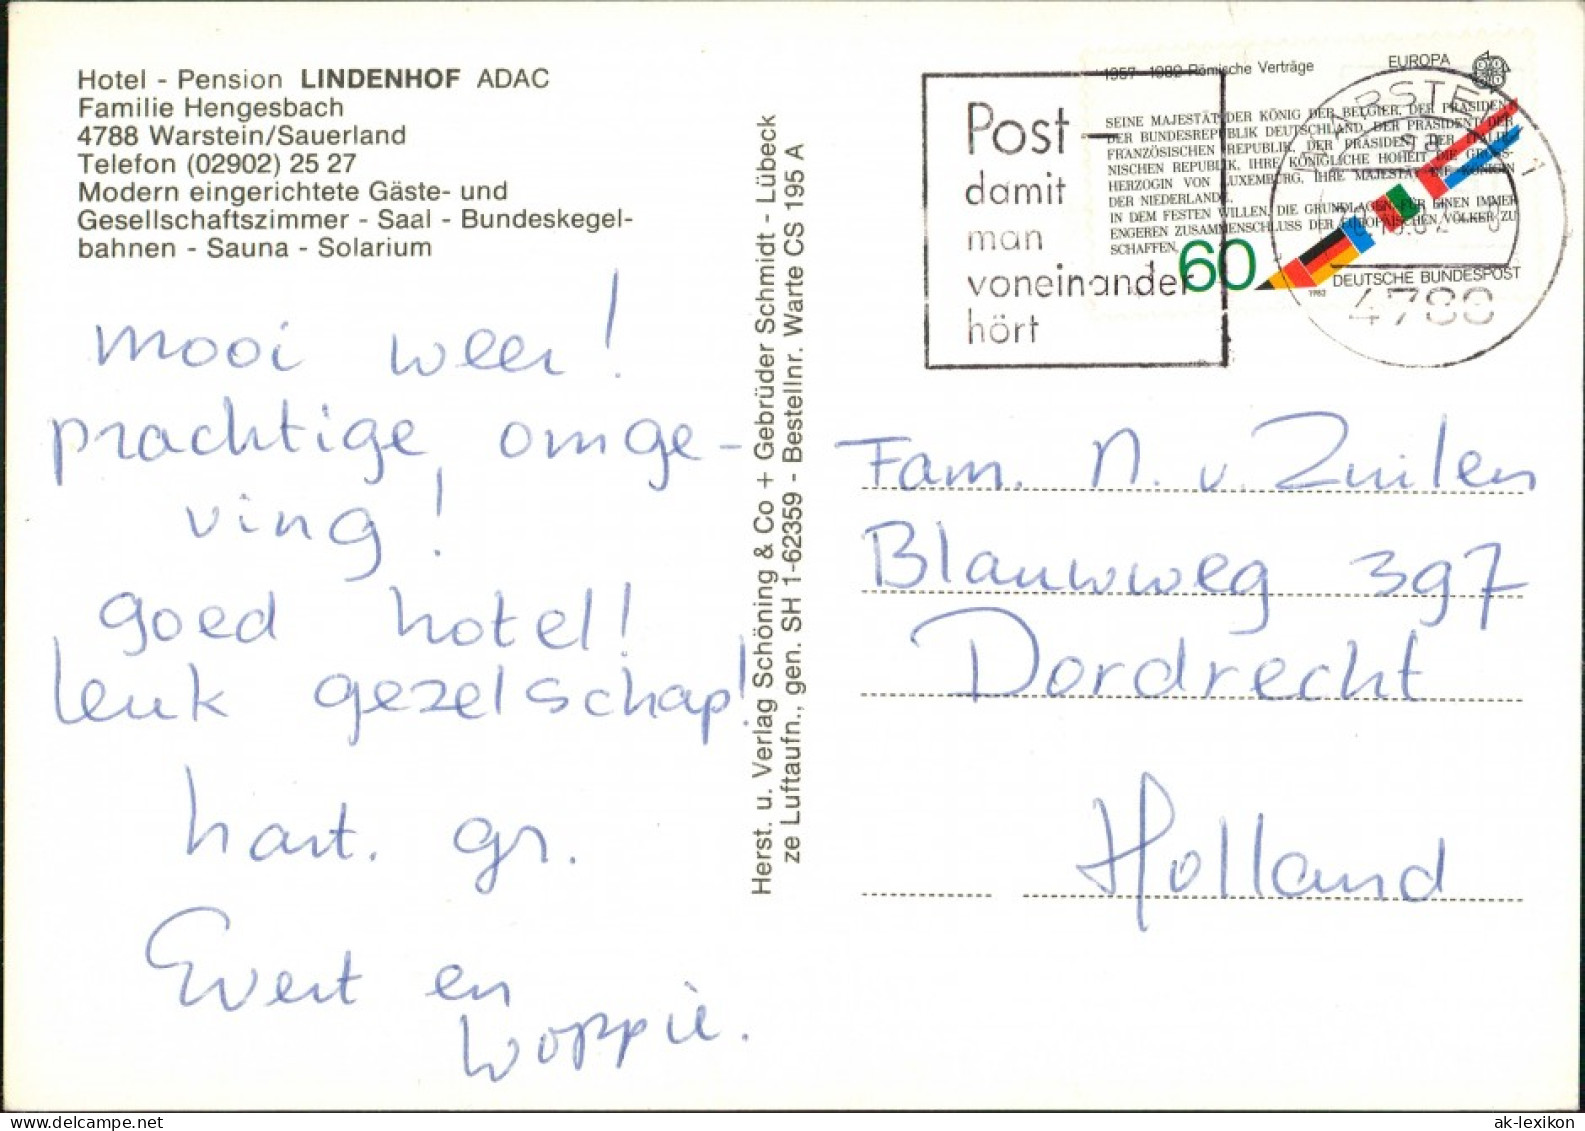 Hotel - Pension LINDENHOF ADAC
Familie Hengesbach
4788 Warstein/Sauerland
Telefon (02902) 25 27
Modern eingerichtete Gäste- und
Gesellschaftszimmer - Saal - Bundeskegel-
bahnen - Sauna - Solarium
mooi weer!
prachtige omge-
ving!
goed hotel!
leuk gezelschap!
hart. gr.
Evert en
Woppie.
Herst. u. Verlag Schöning & Co + Gebrüder Schmidt - Lübeck
ze Luftaufn., gen. SH 1-62359 - Bestellnr. Warte CS 195 A
Post -
damit
man
voneinander
hört
1957 - 1982 Römische Verträge
EUROPA
SEINE MAJESTÄT DER KÖNIG DER BELGIER, DER PRÄSIDENT
DER BUNDESREPUBLIK DEUTSCHLAND, DER PRÄSIDENT DER
FRANZÖSISCHEN REPUBLIK, DER PRÄSIDENT DER ITALIE-
NISCHEN REPUBLIK, IHRE KÖNIGLICHE HOHEIT DIE GROSS-
HERZOGIN VON LUXEMBURG, IHRE MAJESTÄT DIE KÖNIGIN
DER NIEDERLANDE,
IN DEM FESTEN WILLEN, DIE GRUNDLAGEN FÜR EINEN IMMER
ENGEREN ZUSAMMENSCHLUSS DER EUROPÄISCHEN VÖLKER ZU
SCHAFFEN,
60
DEUTSCHE BUNDESPOST
1982
WARSTEIN 1
4788
Fam. N. v. Zuilen
Blauwweg 397
Dordrecht
Holland
ak-lexikon